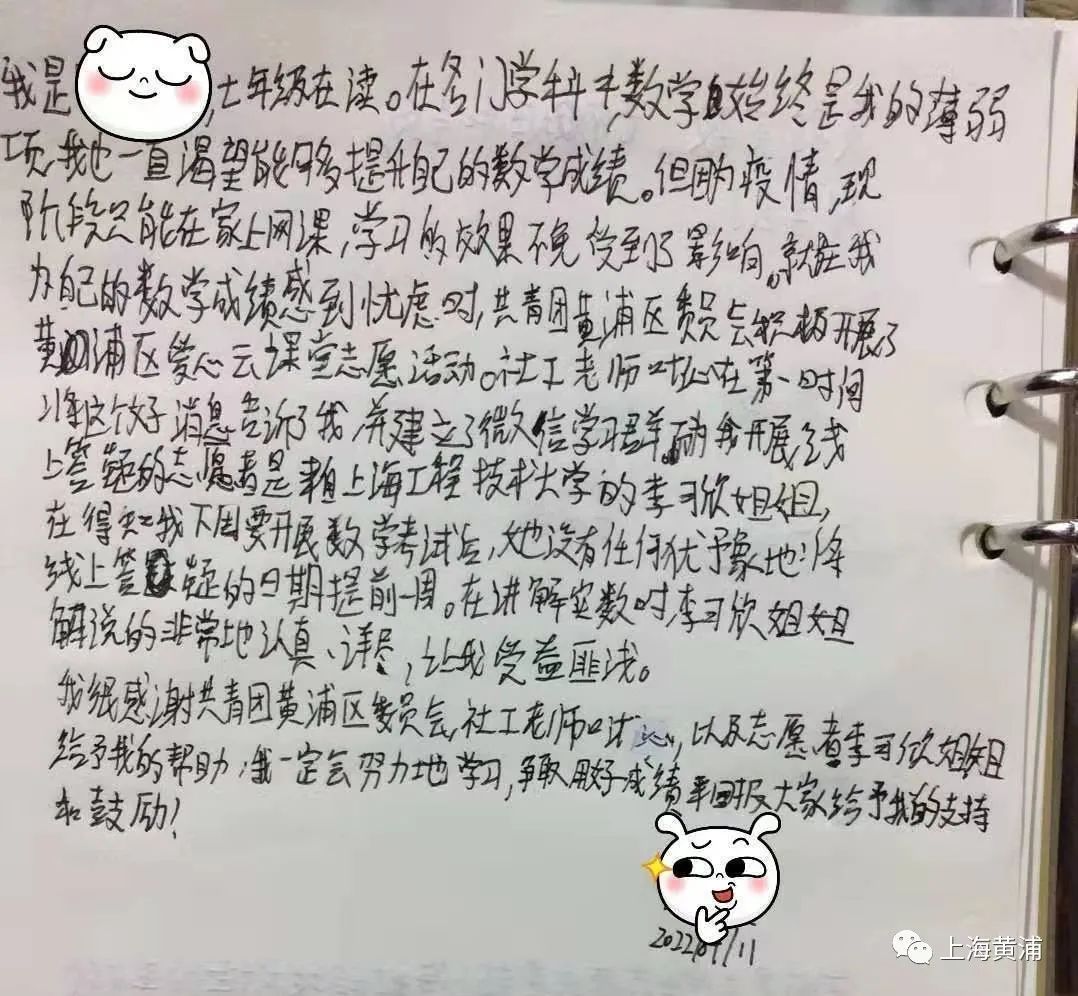 我是 ,七年级在读。在各门学科中,数学始终是我的薄弱
项,我也一直渴望能够提升自己的数学成绩。但因为疫情,现
阶段只能在家上网课,学习的效果不免受到了影响。就在我
为自己的数学成绩感到忧虑时,共青团黄浦区委员会积极开展了
黄浦区爱心云课堂志愿活动。社工老师叶沁在第一时间
将这个好消息告诉了我,并建立了微信学习群。辅我开展线
上答疑的志愿者是来自上海工程技术大学的李习欣姐姐,
在得知我下周要开展数学考试后,她没有任何犹予象地将
线上答疑的日期提前一周。在讲解实数时,李习欣姐姐
解说的非常地认真、详尽,让我受益匪浅。
我很感谢共青团黄浦区委员会,社工老师叶沁,以及志愿者李习欣姐姐
给予我的帮助,我一定会努力地学习,争取用好成绩来回报大家给予我的支持
和鼓励!
2022/ /11
上海黄浦